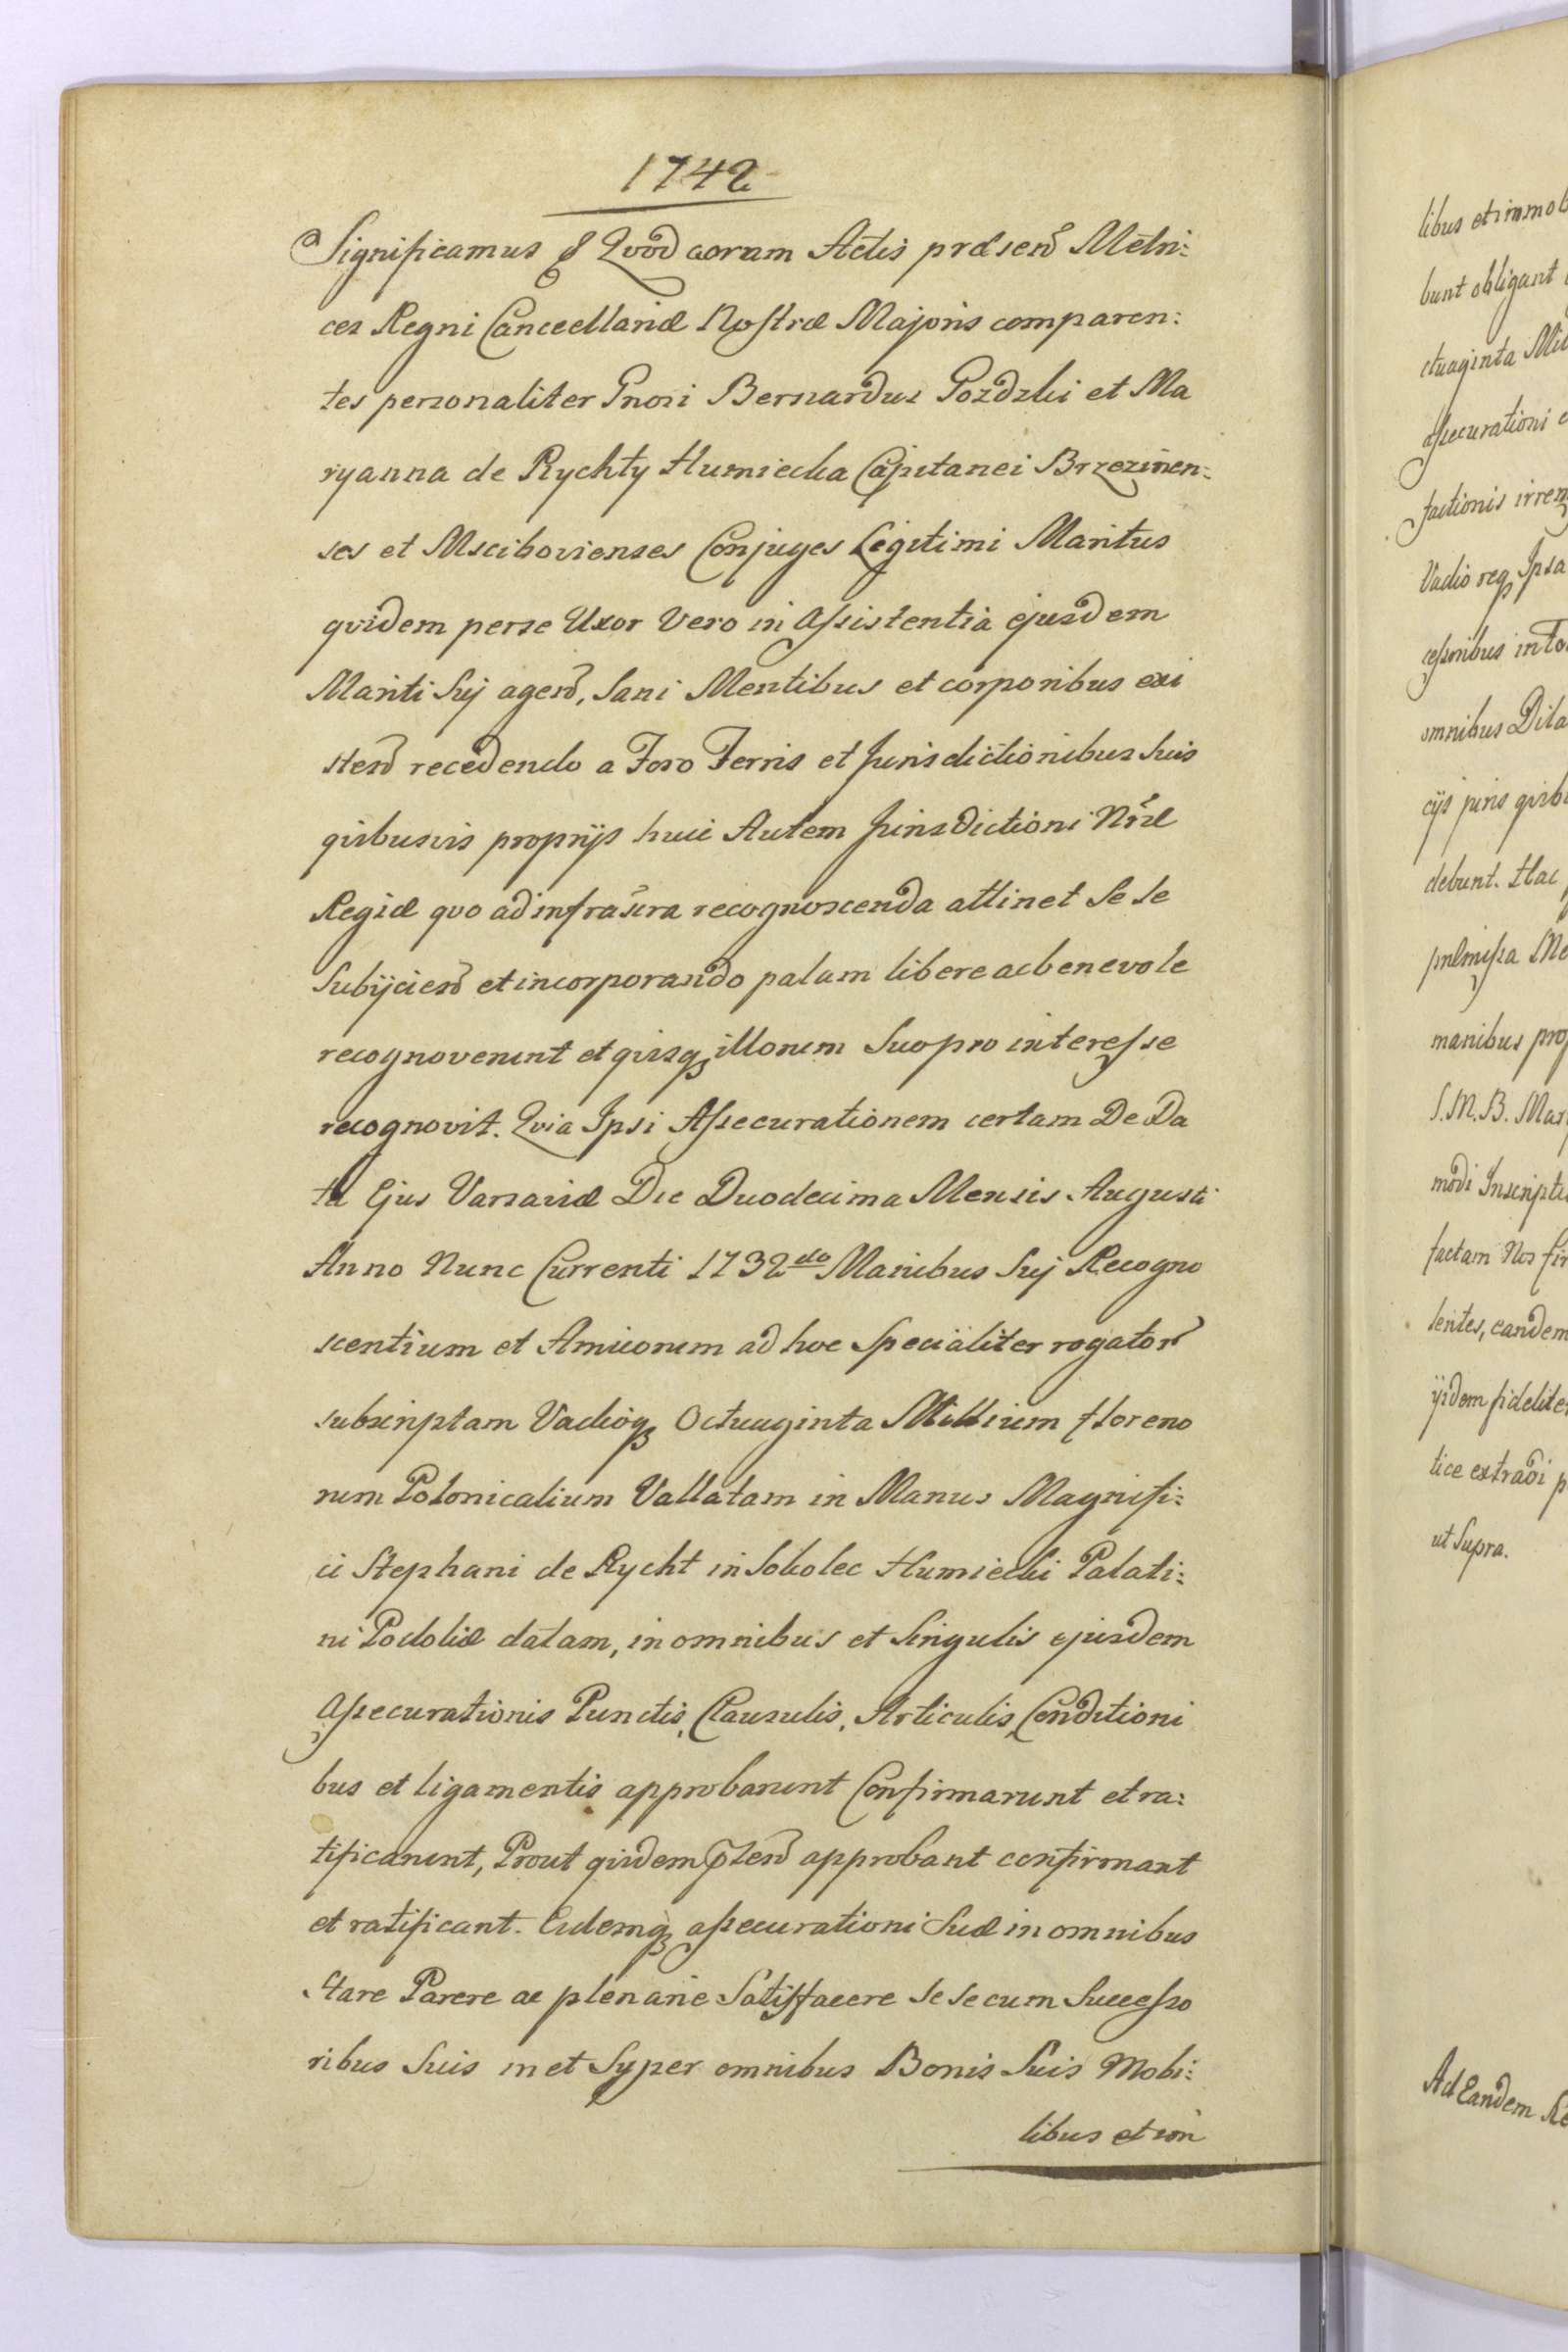 1742
Significamus & Qvod coram Actis præsen Metri:
ces Regni Cancellariæ Nostræ Majoris comparen:
tes personaliter Gnosi Bernardus Gozdzki et Ma
ryanna de Rychty Humiecka Capitanei Brzezinen:
ses et Mscibovienses Conjuges Legitimi Maritus
qvidem perse Uxor Vero in Assistentia ejusdem
Mariti Suj agen, Sani Mentibus et corporibus exi
sten recedendo a Foro Terris et Jurisdictionibus Suis
qvibusvis proprijs huic Autem Jurisdictioni Nræ
Regiæ qvo ad infrascra recognoscenda attinet Se se
Subijcien et incorporando palam libere ac benevole
recognoverunt et qvisq illorum Suo pro interesse
recognovit. Qvia Ipsi Assecurationem certam De Da
ta Ejus Varsaviæ Die Duodecima Mensis Augusti
Anno Nunc Currenti 1732do Manibus Suj Recogno
scentium et Amicorum ad hoc Specialiter rogator
subscriptam Vadioq Octuaginta Millium floreno
rum Polonicalium Vallatam in Manus Magnifi:
ci Stephani de Rycht in Sokolec Humiecki Palati:
ni Podoliæ datam, in omnibus et Singulis ejusdem
Assecurationis Punctis, Clausulis, Articulis, Conditioni
bus et ligamentis approbarunt Confirmarunt et ra:
tificarunt, Prout qvidem approbant confirmant
et ratificant. Eidemq assecurationi Suæ in omnibus
stare Parere ac plenarie Satisfacere se se cum Successo
ribus Suis met Super omnibus Bonis Suis Mobi:
libus et im
libus et immob
bunt obligant
ctuaginta Mil
assecurationi
factionis irrem
Vadio req Ipsa
cessoribus in Fo
omnibus Dila
cijs juris qvib
debunt. Hac
præmissa Me
manibus prop
S. M. B. Mar
modi Inscripti
factam Nos fir
lentes, eandem
ijsdem fidelite
tice extradi p
ut Supra.
Ad Eandem Re